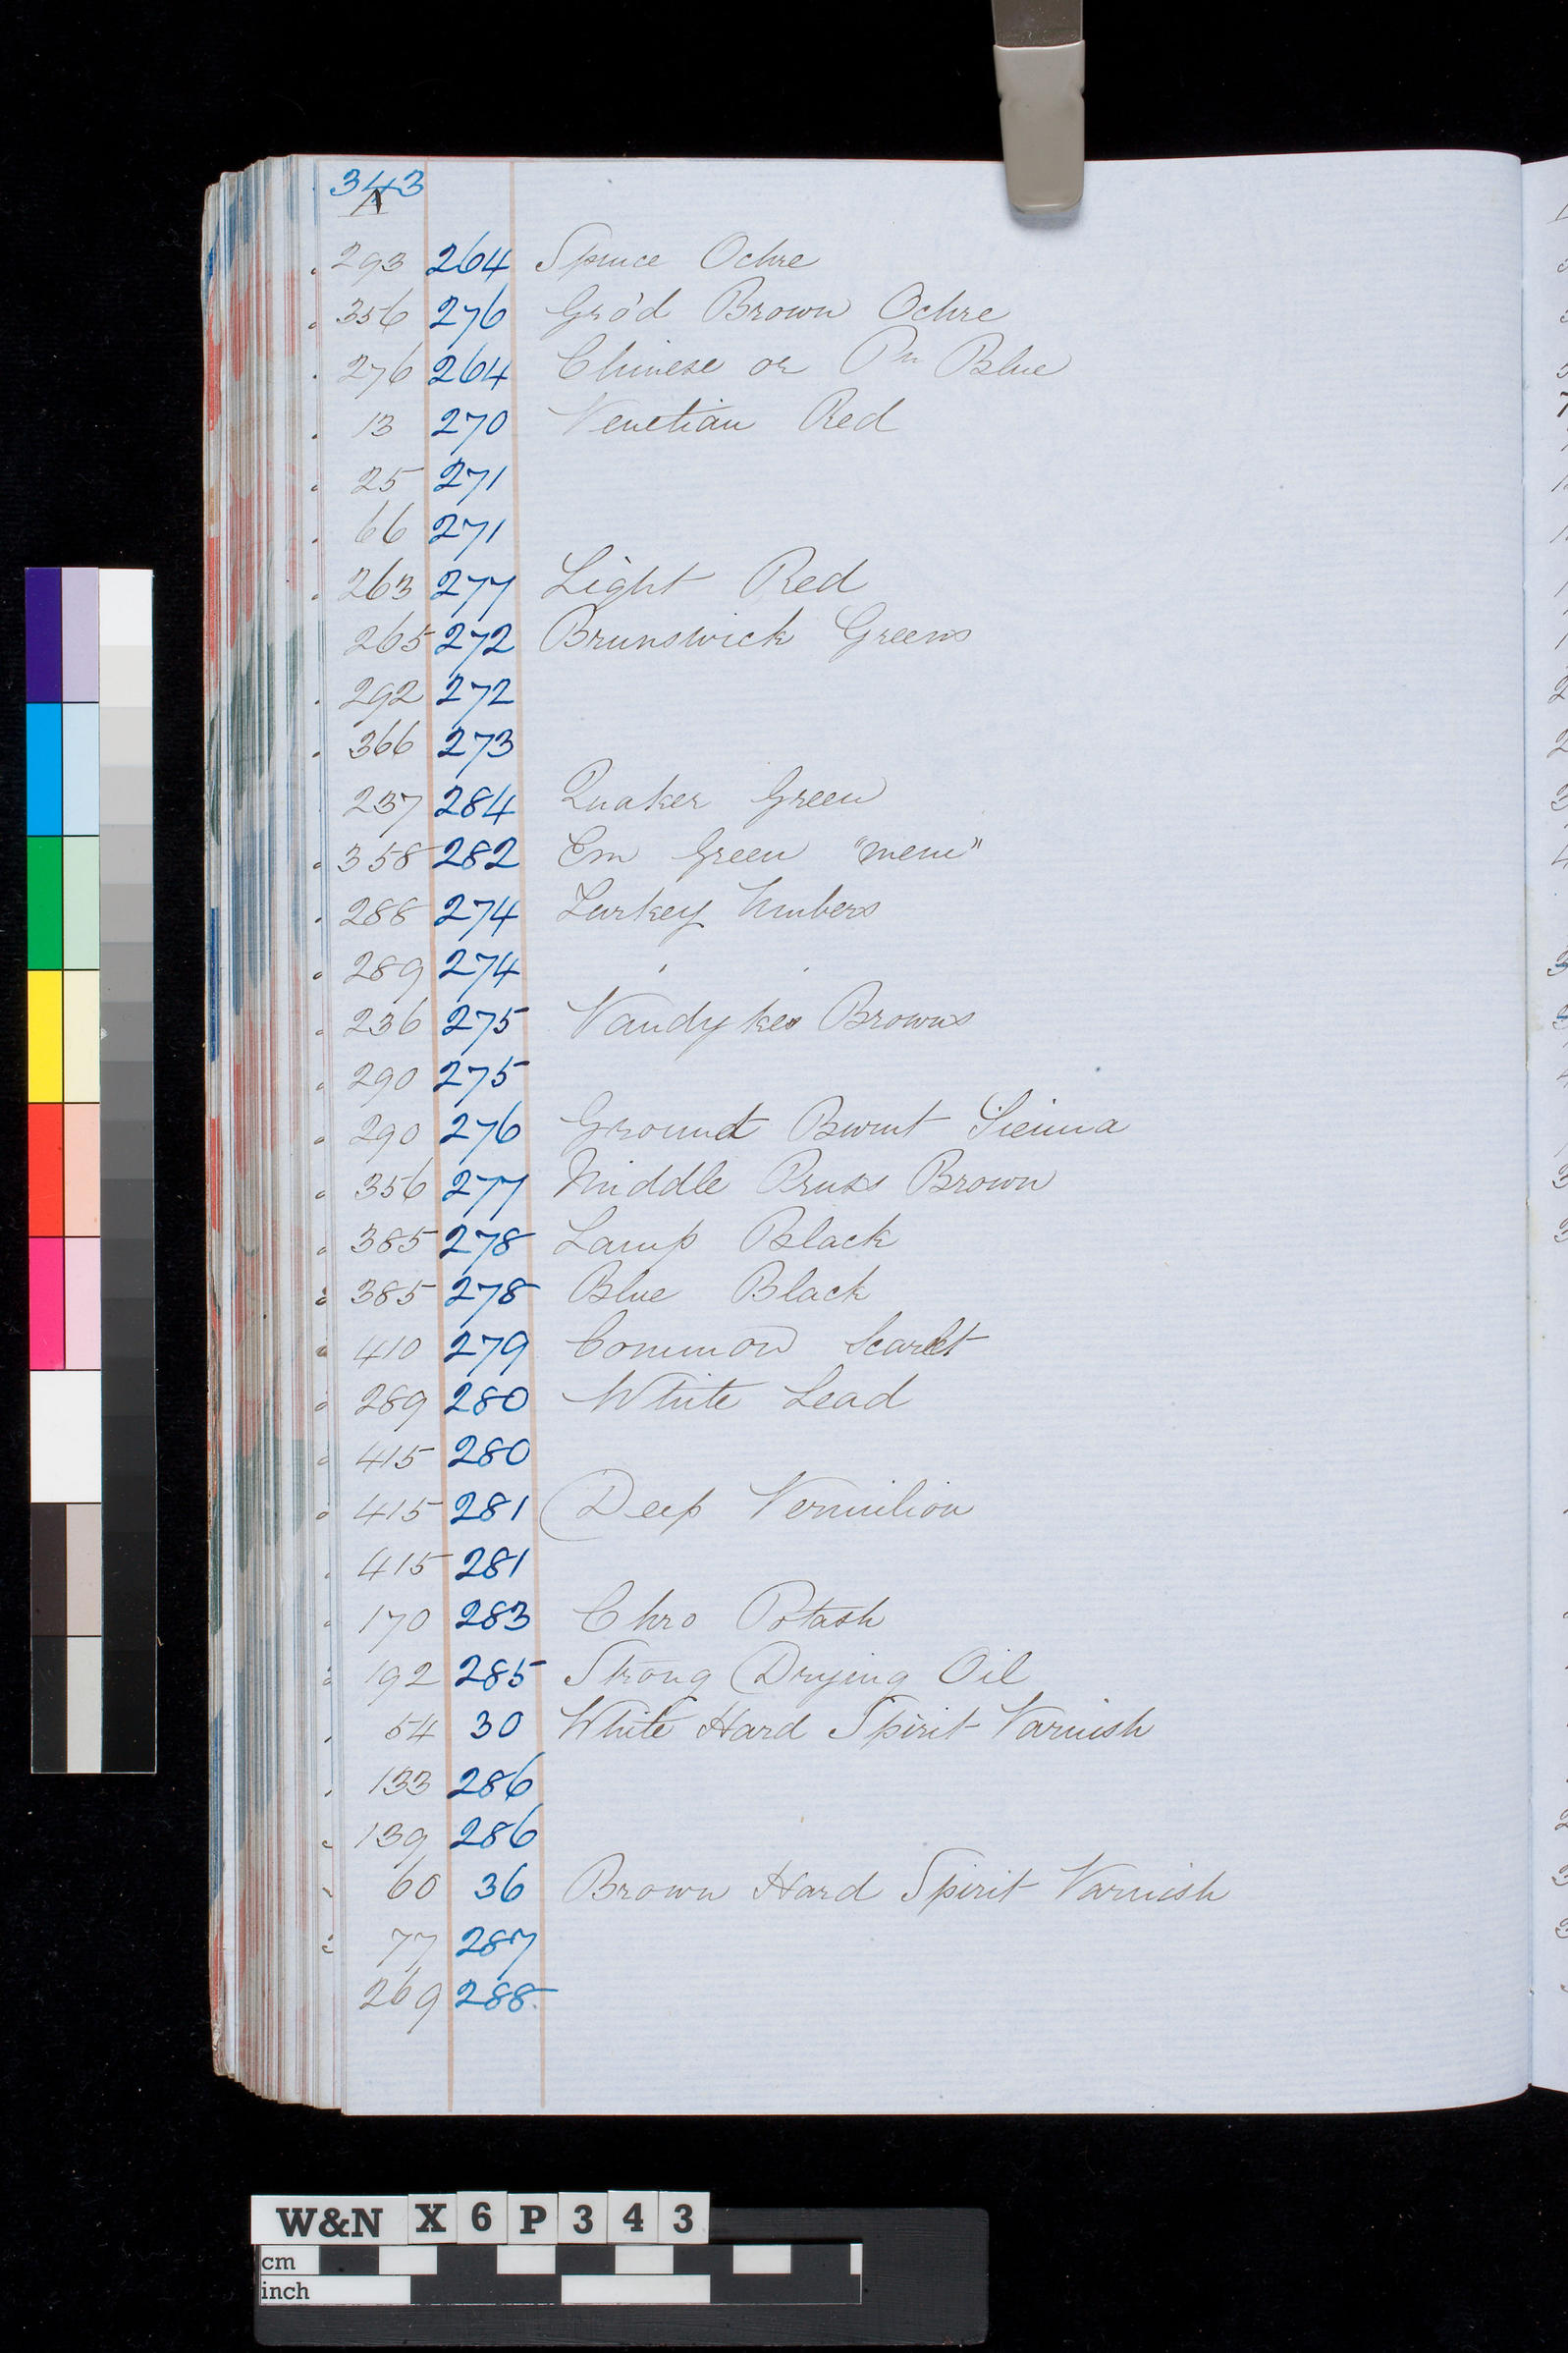 343
A
293 264 Spruce Ochre
356 276 Gro'd Brown Ochre
276 264 Chinese or Pn Blue
13 270 Venetian Red
25 271
66 271
263 277 Light Red
265 272 Brunswick Greens
292 272
366 273
237 284 Quaker Green
358 282 Em Green "mem"
288 274 Turkey Umbers
289 274 ' '
236 275 Vandykes Browns
290 275
290 276 Ground Burnt Sienna
356 277 Middle Pruss Brown
385 278 Lamp Black
385 278 Blue Black
410 279 Common Scarlet
289 280 White Lead
415 280
415 281 Deep Vermilion
415 281
170 283 Chro Potash
192 285 Strong Drying Oil
54 30 White Hard Spirit Varnish
133 286
139 286
60 36 Brown Hard Spirit Varnish
77 287
269 288
W&N X 6 P 3 4 3
cm
inch